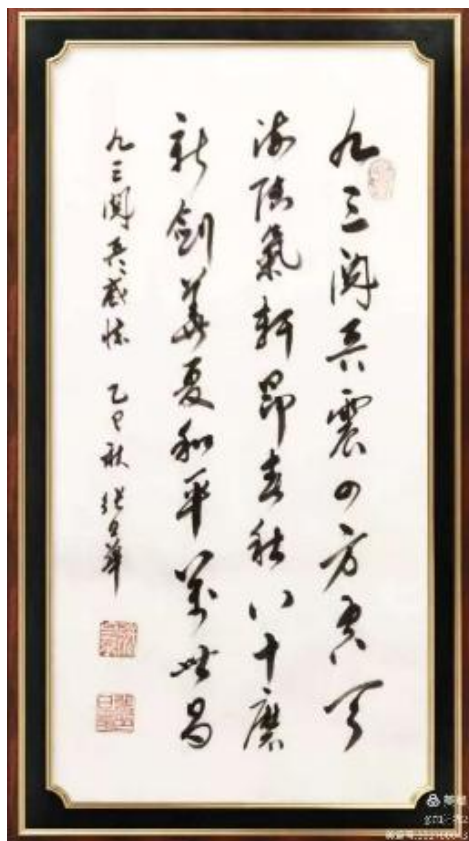 九三阅兵震四方空天
海陆气轩昂春秋八十磨
新剑华夏和平万世昌
九三阅兵感怀 乙巳秋 张日华